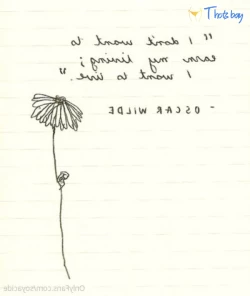 Thatsboy
"I don't want to
earn my living;
I want to live."
- OSCAR WILDE
OnlyFans.com/royacide